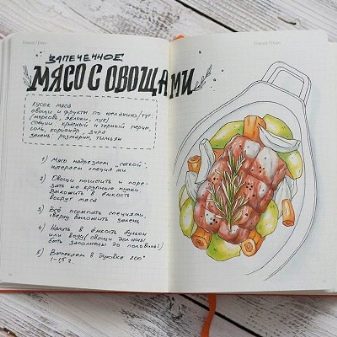 ЗАПЕЧЕННОЕ
МЯСО С ОВОЩАМИ
кусок мяса
овощи и фрукты по желанию/тут
(морковь, яблоки, лук)
специи красный и чёрный перец,
соль, кориандр, зира
зелень розмарин, тимьян
1) Мясо надрезаем
натираем специями
2) Овощи почистить и поре-
зать на крупные куски
выложить в ёмкость
вокруг мяса
3) Всё посыпать специями,
сверху выложить зелень
4) Налить в ёмкость бульон
или воду (овощи должны
быть заполнены до половины)
5) Запекаем в духовке 200°
1-1,5 ч